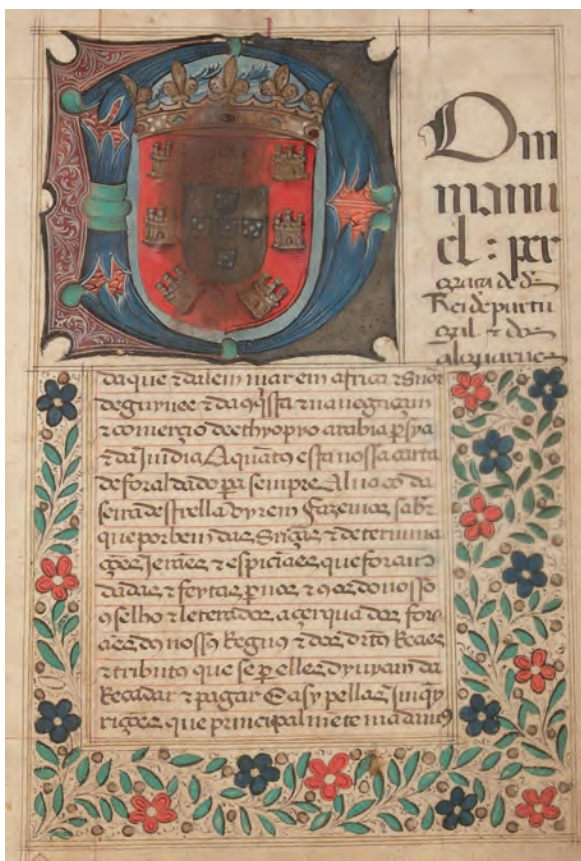 Dm
manu
el : per
graça de ds
Rei de purtu
gal ⁊ dos
alguarues
daque ⁊ dalem mar em africa ⁊ Snor
de guynee ⁊ da ⁊ nauegaçam
⁊ comerçio de ethyopyo arabia psya
⁊ da Jmdia A quãtos esta nossa carta
de foral dado pa sempre Aluoco da
serra destrella vyrem fazemos sabr
que por bem das ⁊ detrimina
ções Jeraes ⁊ espiciaes que foram
dadas ⁊ feytas p nos ⁊ cos do nosso
cselho ⁊ leterados açerqua dos for
aes de nossos Regnos ⁊ dos drtos Reaes
⁊ tributos que se p elles dyuyam da
Recadar ⁊ pagar E asy pellas Jmqy
rições que principalmete mãdamos